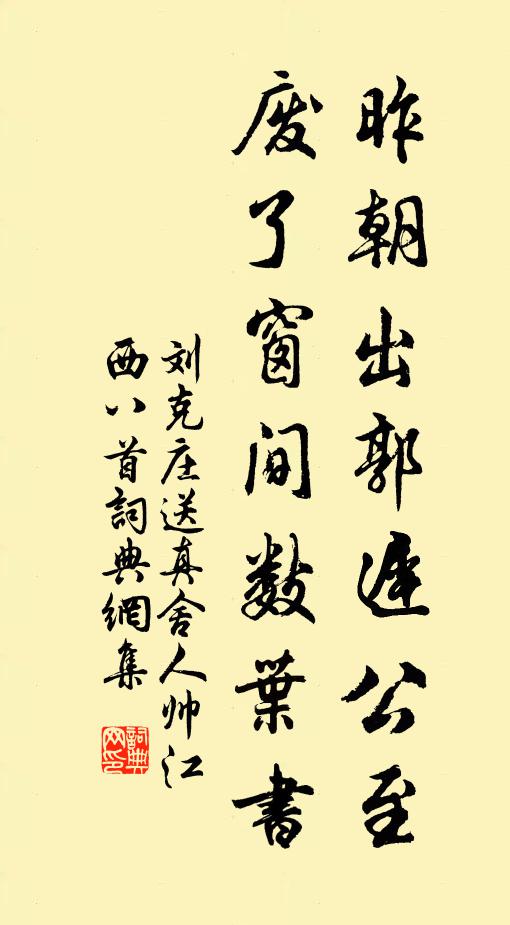 昨朝出郭迟公至
废了窗间数叶书
刘克庄送真舍人帅江
西八首詞典網集
詞典
网印